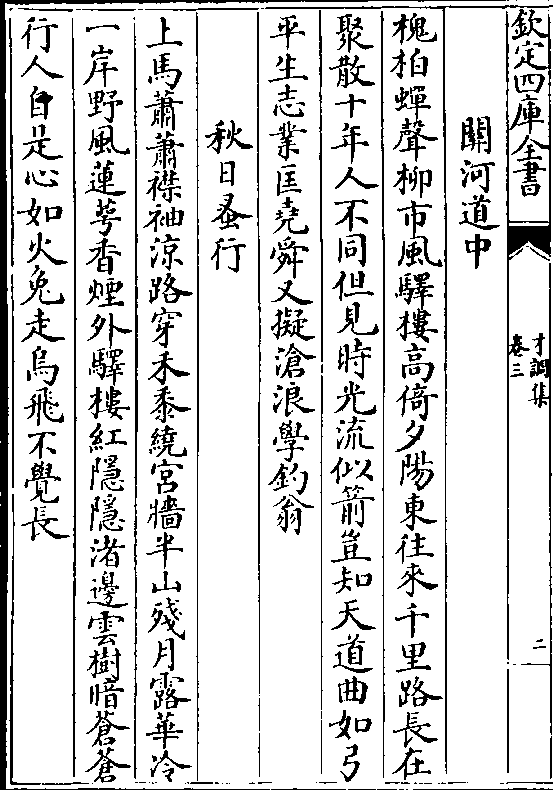 欽定四庫全書
才調集
卷三
二
關河道中
槐柏蟬聲柳市風驛樓高倚夕陽東往來千里路長在
聚散十年人不同但見時光流似箭豈知天道曲如弓
平生志業匡堯舜又擬滄浪學釣翁
秋日蚤行
上馬蕭蕭襟袖涼路穿禾黍繞宮牆半山殘月露華冷
一岸野風蓮萼香煙外驛樓紅隱隱渚邊雲樹暗蒼蒼
行人自是心如火兔走烏飛不覺長